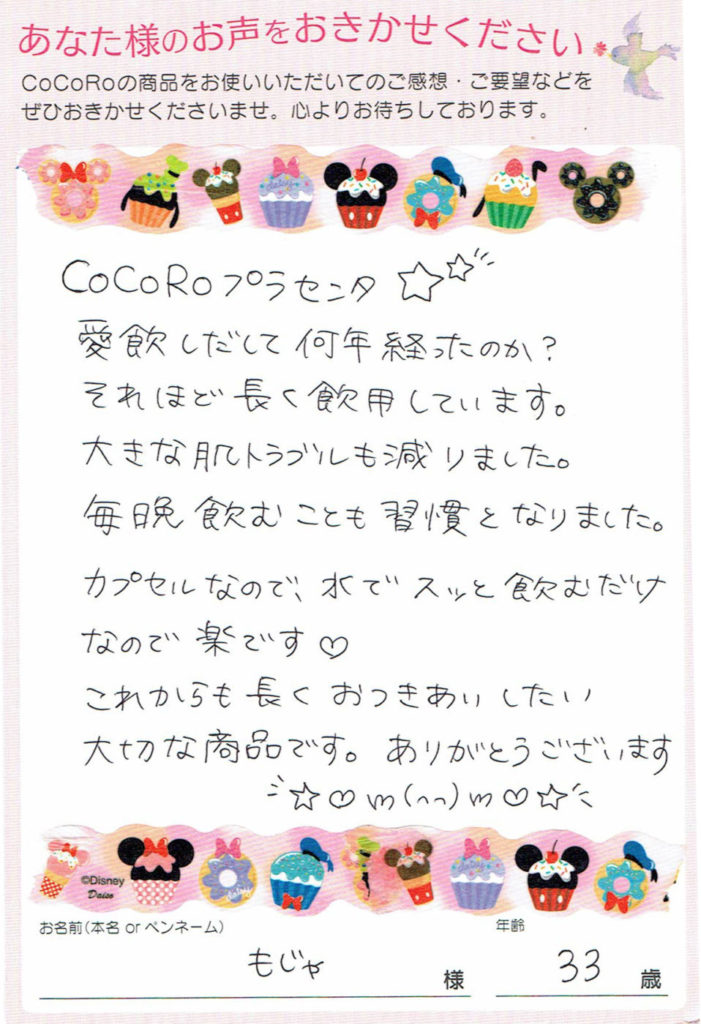 あなた様のお声をおきかせください
CoCoRoの商品をお使いいただいてのご感想・ご要望などを
ぜひおきかせくださいませ。心よりお待ちしております。
daisy
CoCoRoプラセンタ ☆☆
愛飲しだして何年経ったのか?
それほど長く飲用しています。
大きな肌トラブルも減りました。
毎日晩飲むことも習慣となりました。
カプセルなので、水でスッと飲むだけ
なので楽です♡
これからも長くおつきあいしたい
大切な商品です。ありがとうございます
☆♡m(^^)m♡☆
©Disney
Daiso
daisy
daisy
お名前(本名 or ペンネーム)
年齢
もじゃ 様
33 歳